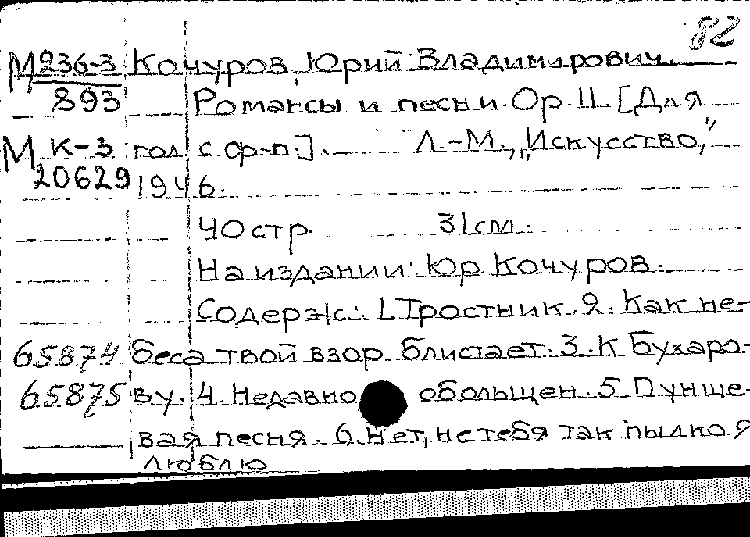 82
М 236-3 Кочуров, Юрий Владимирович.
893 Романсы и песни Ор. 11. [Для
М К-3 гол. с ф-п.]. Л.-М., "Искусство,"
20629 1946.
40 стр. 31 см.
На издании: Юр. Кочуров.
Содерж.: 1. Тростник. 2. Как не-
65874 беса твой взор блистает. 3. К Бухаро-
65875 ву. 4. Недавно обольщен. 5. Пунше-
вая песня. 6. Нет, не тебя так пылко я
люблю